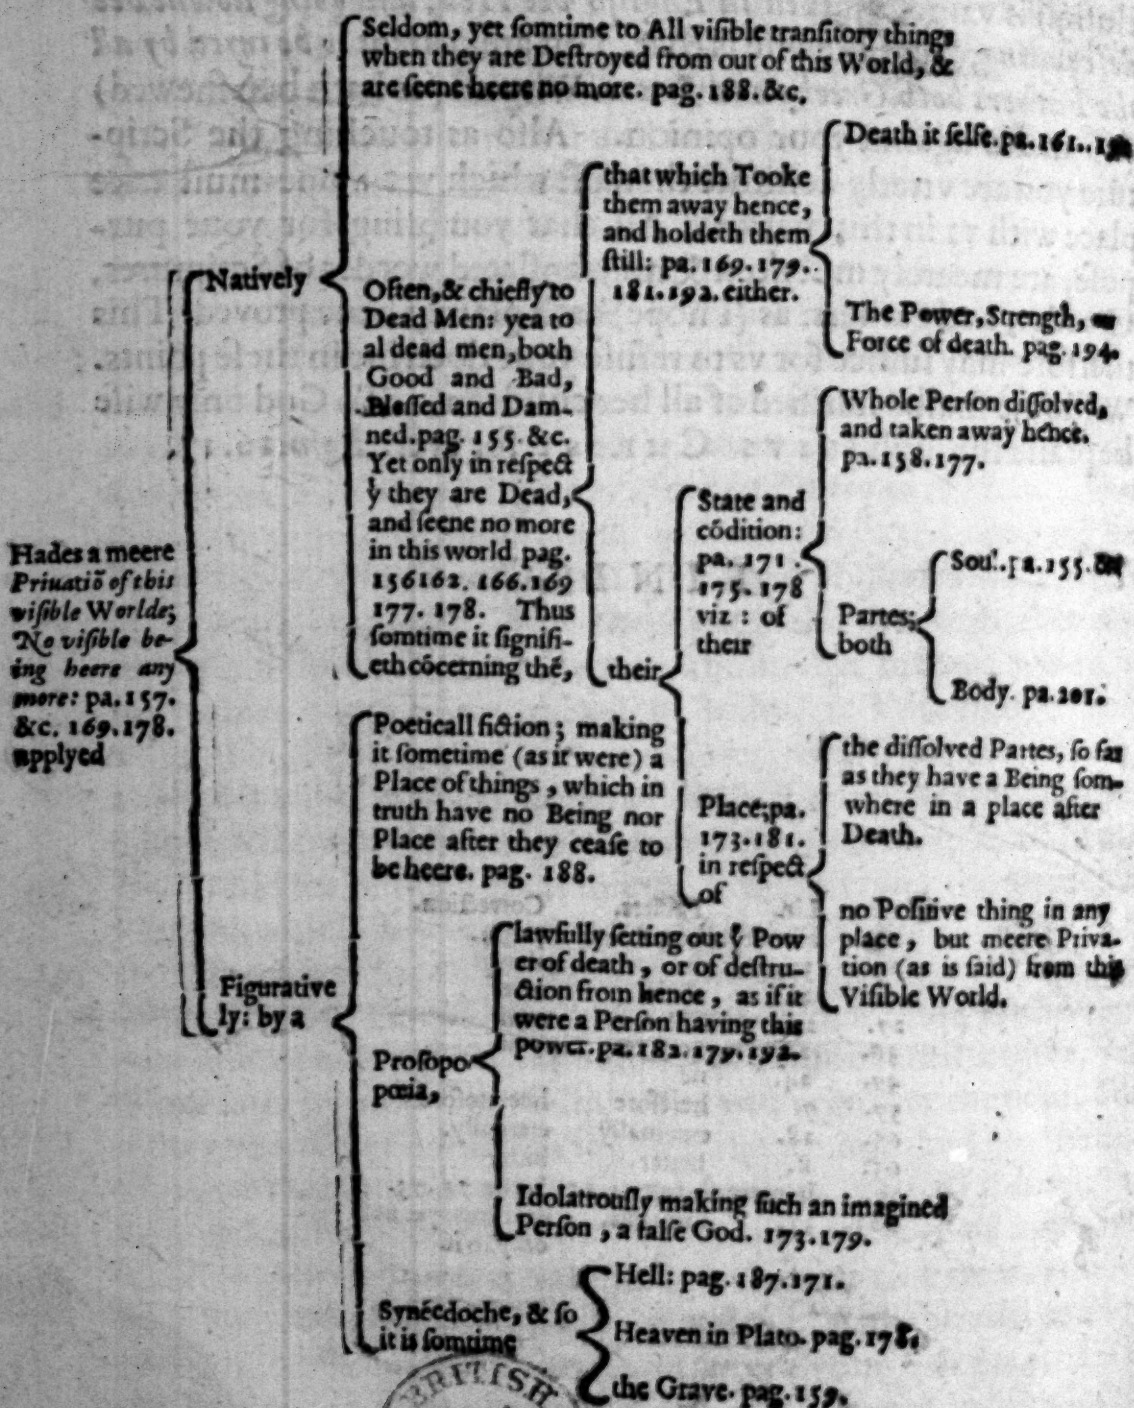 Seldom, yet ſomtime to All viſible tranſitory things
when they are Deſtroyed from out of this World, &
are ſeene heere no more. pag. 188. &c.
Natively
Often, & chiefly to
Dead Men: yea to
al dead men, both
Good and Bad,
Bleſſed and Dam-
ned. pag. 155. &c.
Yet only in reſpect
ẏ they are Dead,
and ſeene no more
in this world pag.
156162. 166. 169
177. 178. Thus
ſomtime it ſignifi-
eth cócerning thé,
that which Tooke
them away hence,
and holdeth them
ſtill: pa. 169. 179.
181. 192. either.
Death it ſelfe. pa. 161.
The Power, Strength,
Force of death. pag. 194.
their
State and
códition:
pa. 171.
175. 178
viz : of
their
Whole Perſon diſſolved,
and taken away héce.
pa. 158. 177.
Partes;
both
Soul. pa. 155. &c
Body. pa. 201.
Place; pa.
173. 181.
in reſpect
of
the diſſolved Partes, ſo far
as they have a Being ſom-
where in a place after
Death.
no Poſitive thing in any
place, but meere Priva-
tion (as is ſaid) from this
Viſible World.
Hades a meere
Priuatiõ of this
viſible Worlde;
No viſible be-
ing heere any
more: pa. 157.
&c. 169. 178.
applyed
Figurative
ly: by a
Poeticall fiction; making
it ſometime (as it were) a
Place of things, which in
truth have no Being nor
Place after they ceaſe to
be heere. pag. 188.
Proſopo
pœia,
lawfully ſetting out ẏ Pow
er of death, or of deſtru-
ction from hence, as if it
were a Perſon having this
power. pa. 182. 179. 192.
Idolatrouſly making ſuch an imagined
Perſon, a falſe God. 173. 179.
Synécdoche, & ſo
it is ſomtime
Hell: pag. 187. 171.
Heaven in Plato. pag. 178.
the Grave. pag. 159.
BRITISH